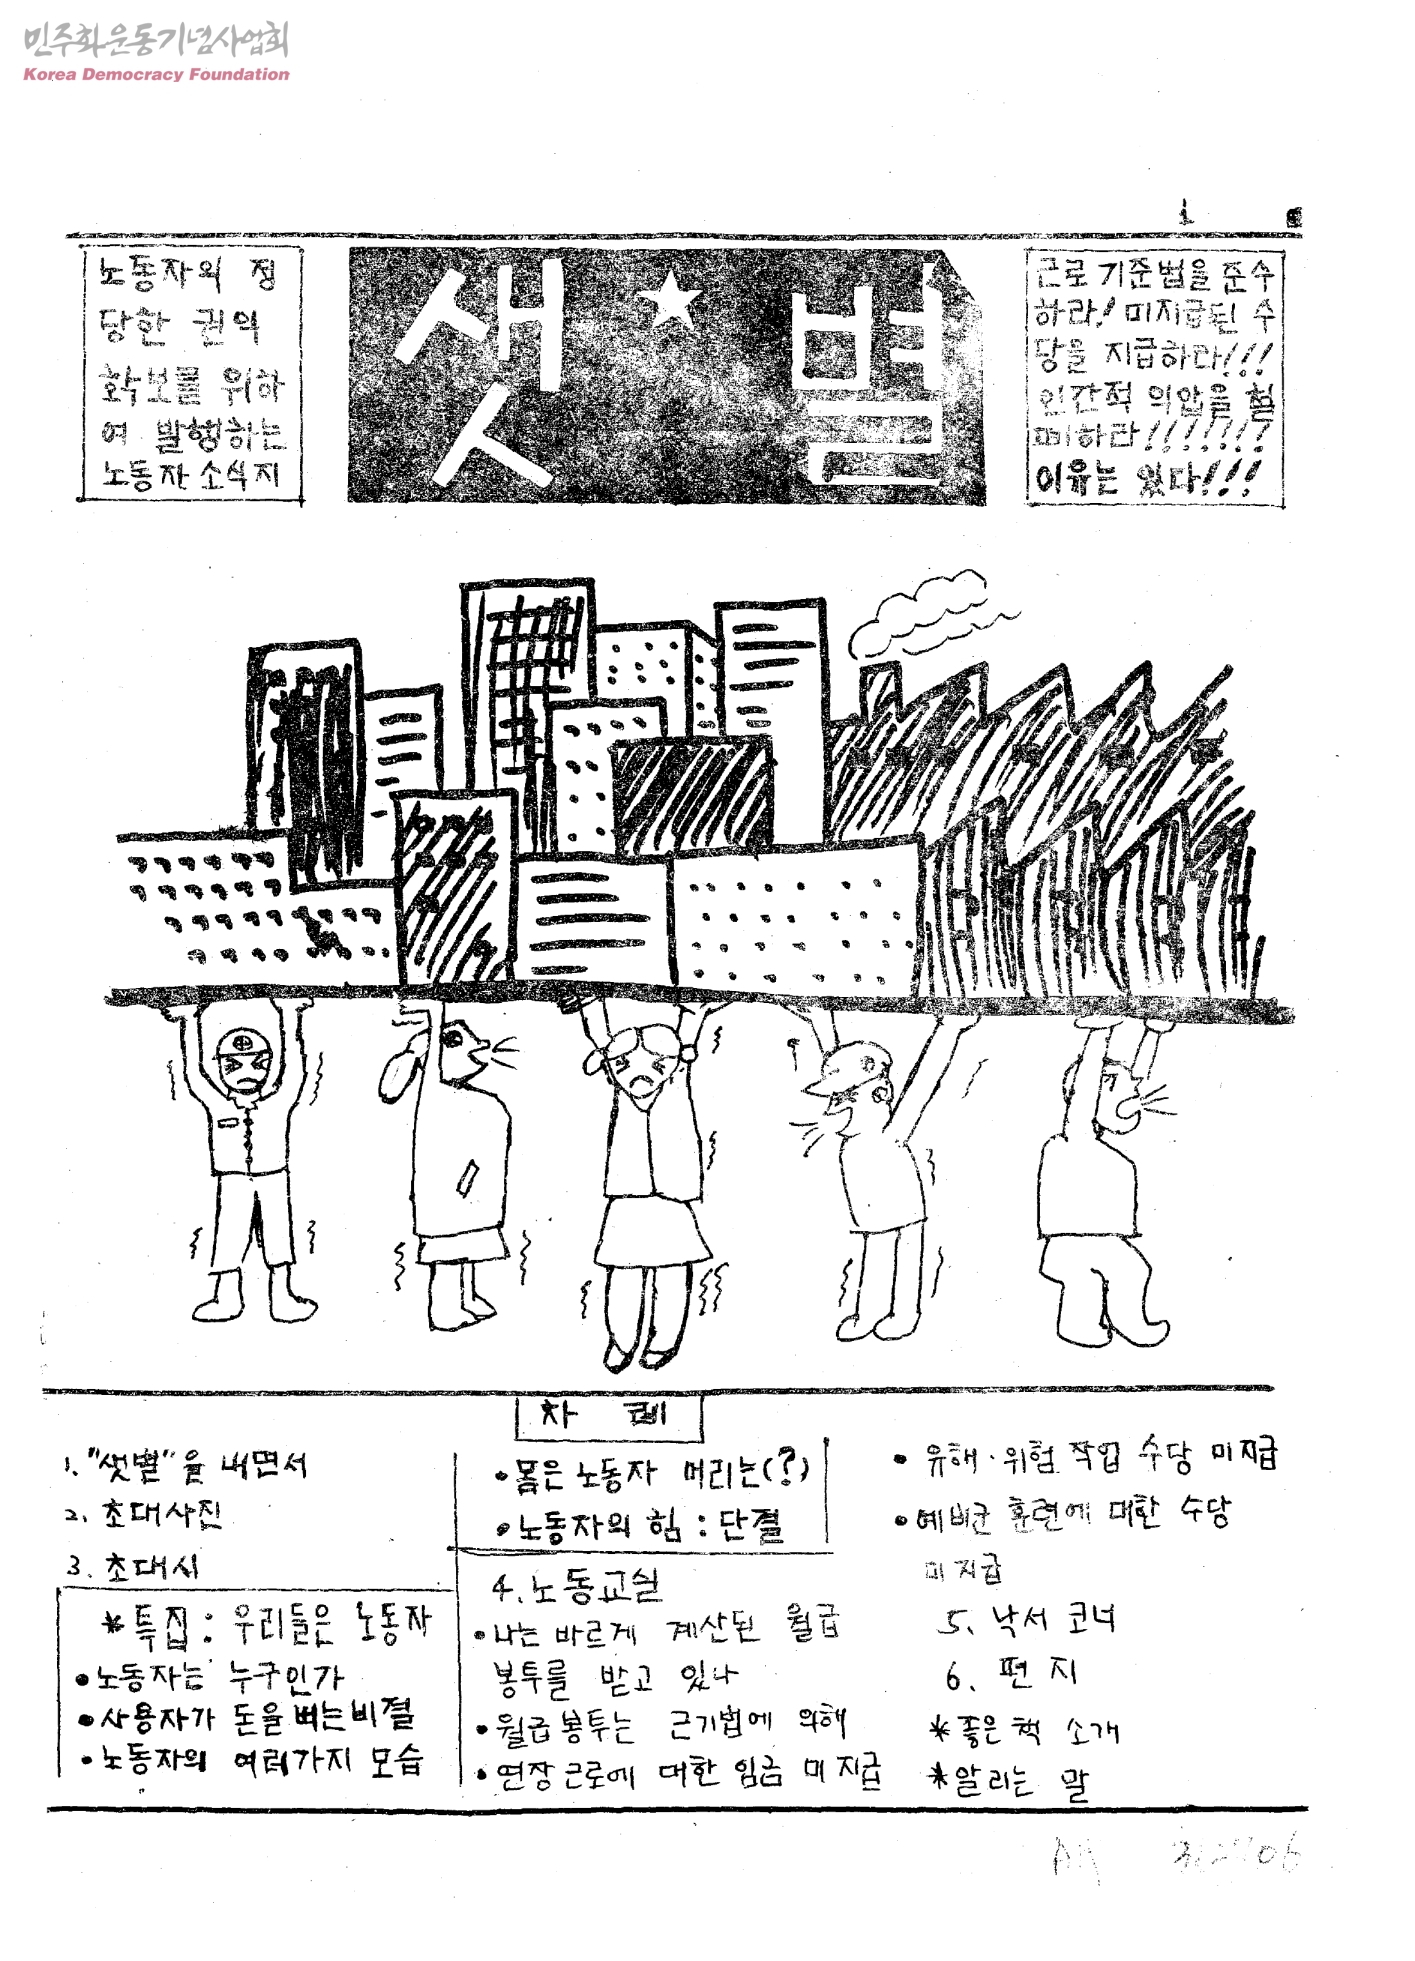 민주화운동기념사업회
Korea Democracy Foundation
1
노동자의 정
당한 권익
확보를 위하
여 발행하는
노동자 소식지
샛★별
근로 기준법을 준수
하라! 미지급된 수
당을 지급하라!!!
인간적 억압을 철
폐하라!!!!!!!
이유는 있다!!!
차 례
1. "샛별"을 내면서
2. 초대사진
3. 초대시
*특집: 우리들은 노동자
•노동자는 누구인가
•사용자가 돈을 버는 비결
•노동자의 여러가지 모습
•몸은 노동자 머리는(?)
•노동자의 힘 : 단결
4. 노동교실
•나는 바르게 계산된 월급
봉투를 받고 있나
•월급봉투는 근기법에 의해
•연장근로에 대한 임금 미지급
•유해·위험 작업 수당 미지급
•예비군 훈련에 대한 수당
미지급
5. 낙서 코너
6. 편 지
*좋은 책 소개
*알리는 말